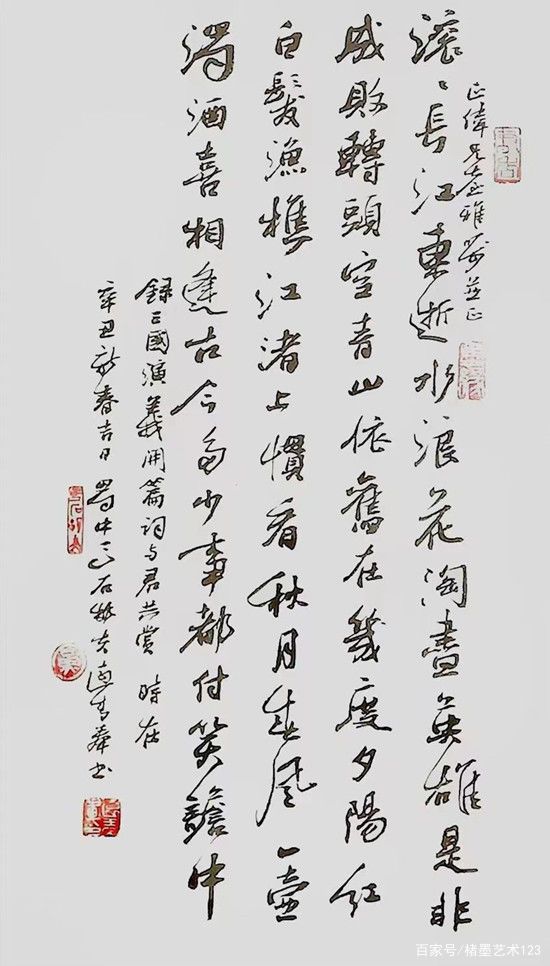 正偉兄臺雅並正
滾〻長江東逝水浪花淘盡英雄是非
成敗轉頭空青山依舊在幾度夕陽紅
白髮漁樵江渚上慣看秋月春風一壺
濁酒喜相逢古今多少事都付笑譫中
錄三國演義開篇詞与君共赏 時在
辛丑新春吉日蜀中石書
百家号/楮墨艺术123